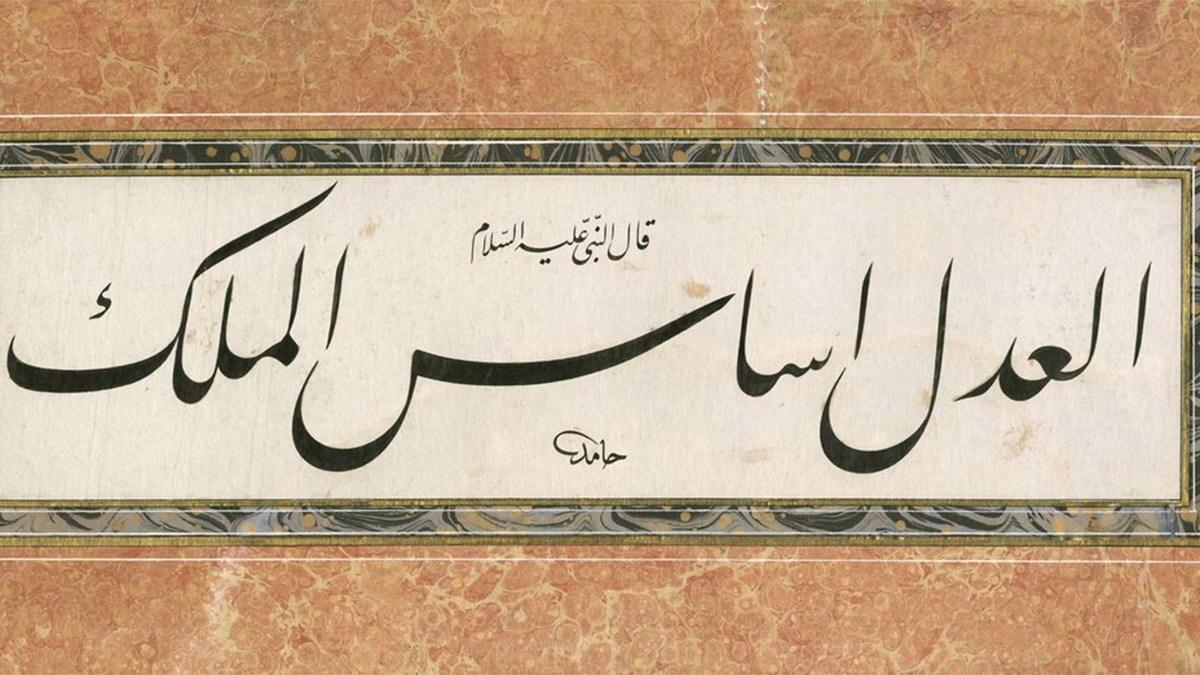 قال النّبىّ عليه السّلام
العدل اساس الملك
حامد